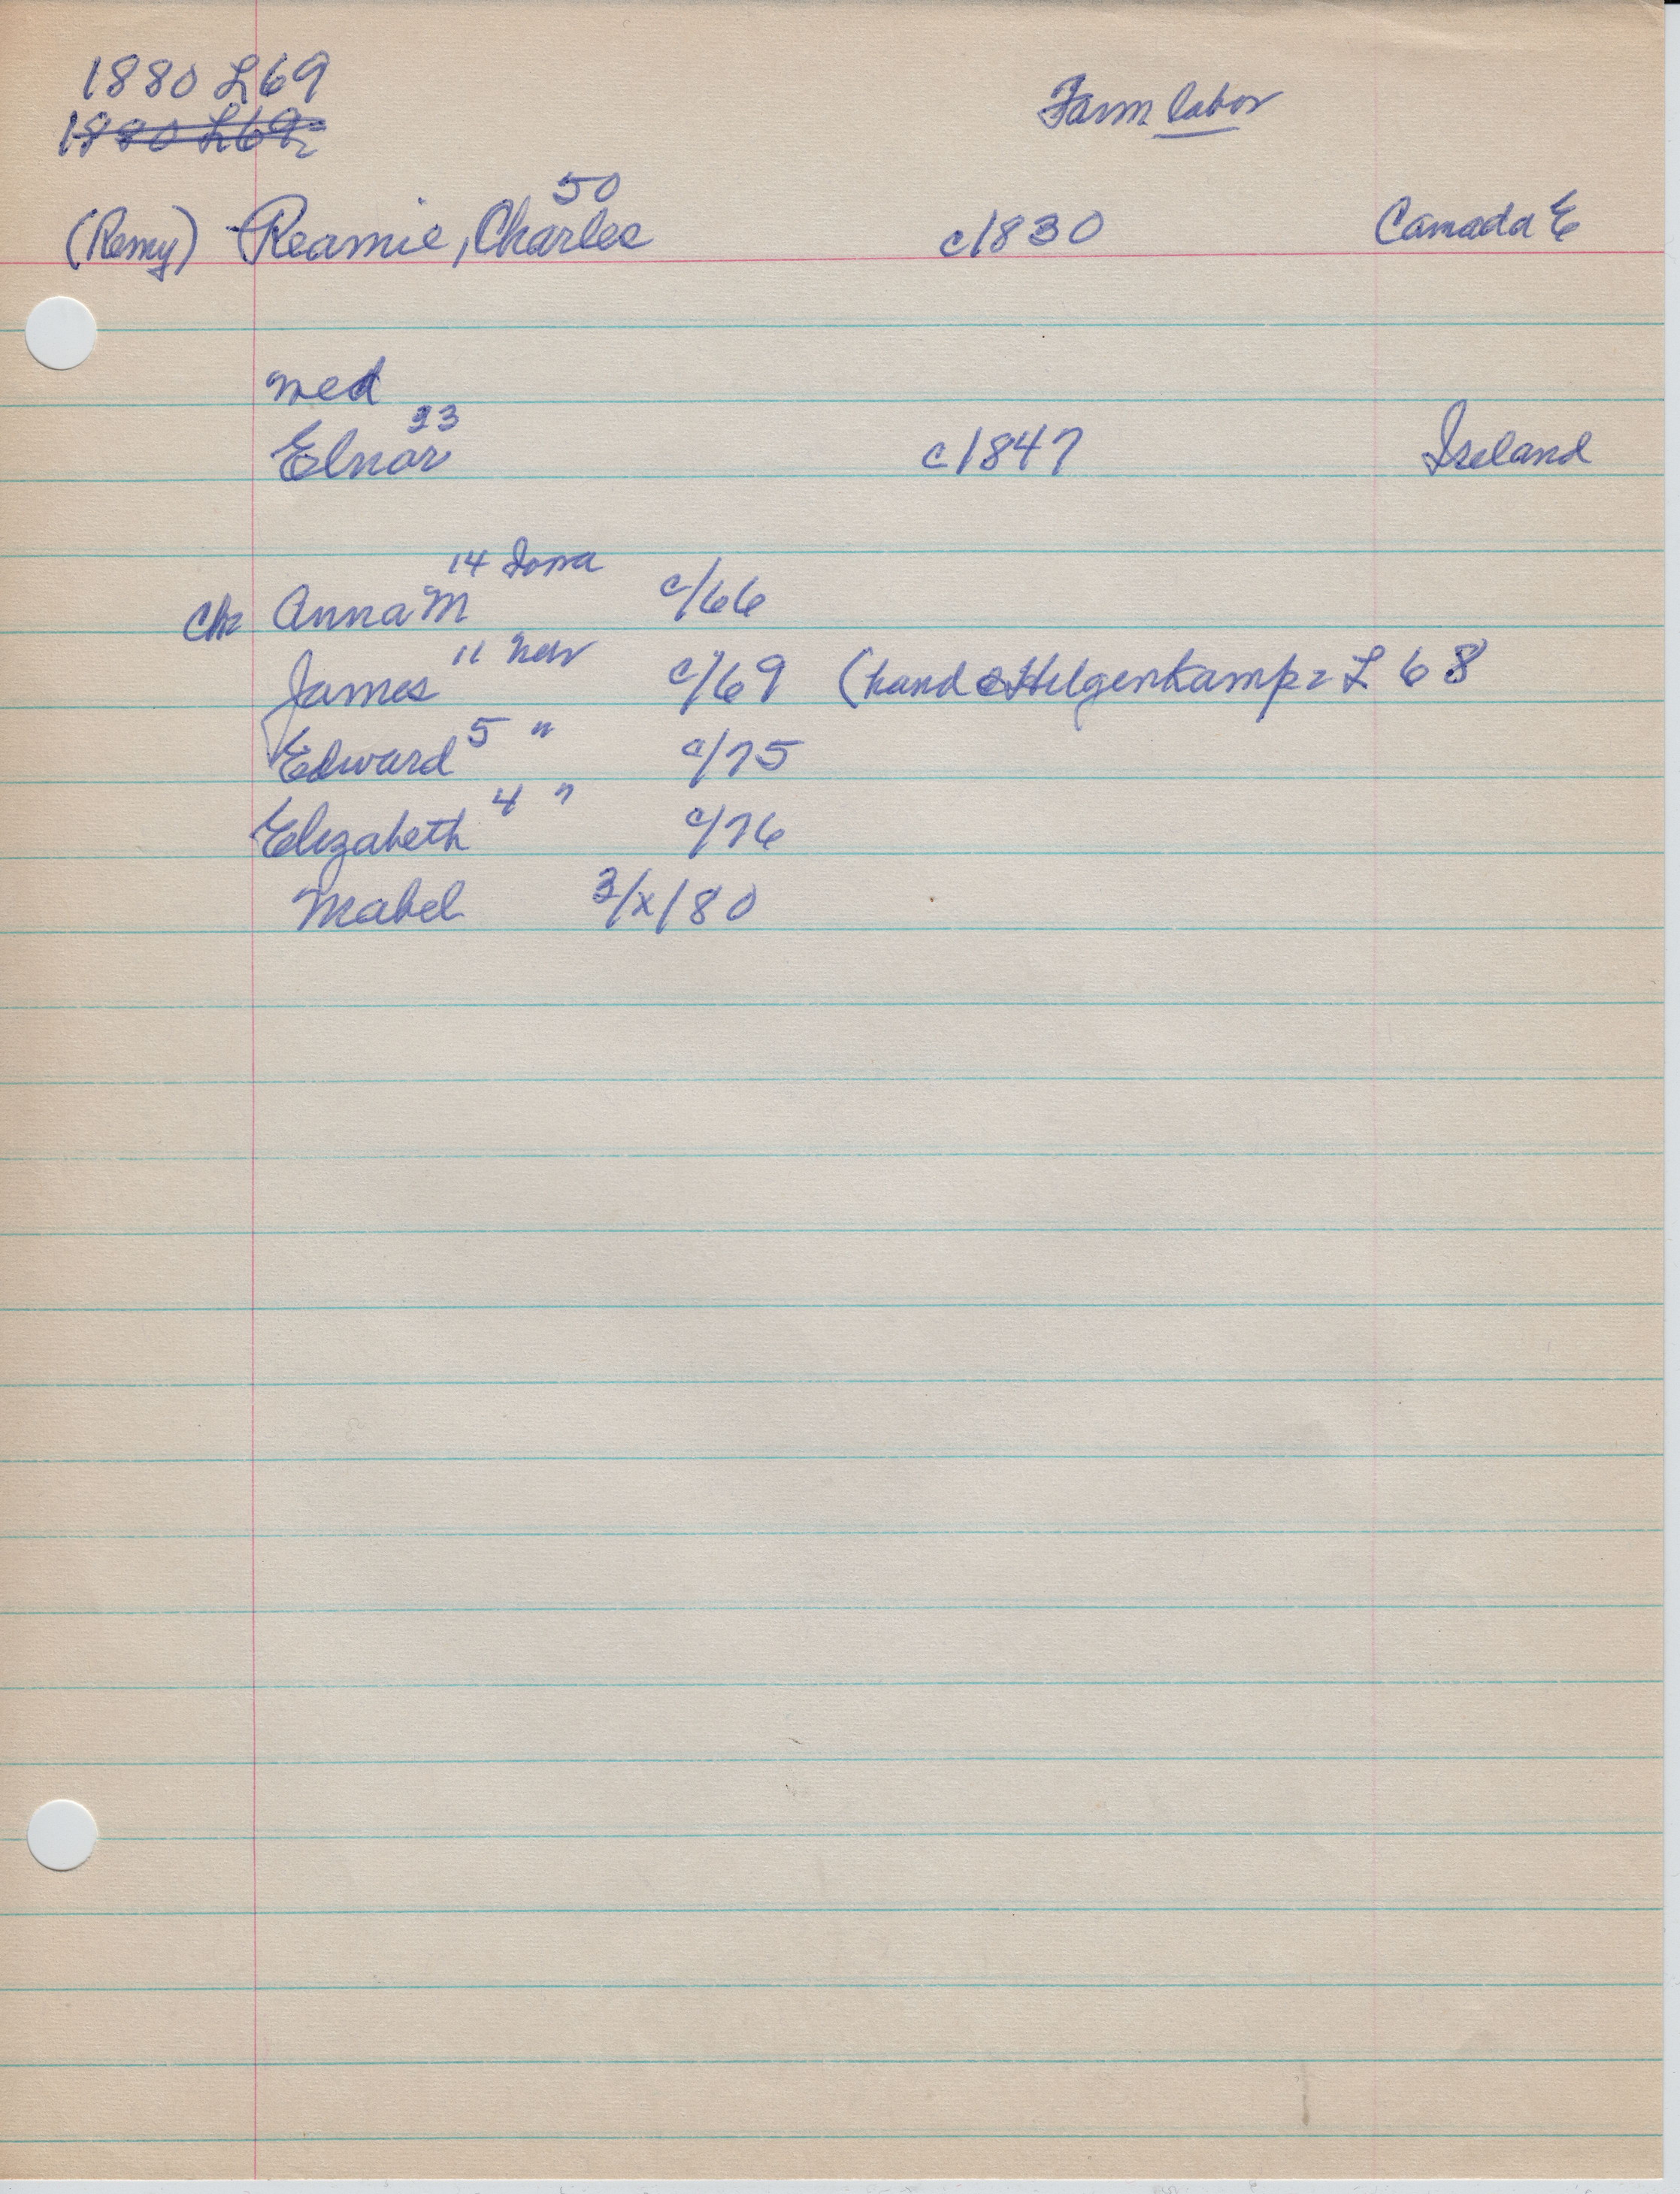 1880 L69
1880 L69
Farm labor
50
(Remy) Reamie, Charles c1830 Canada E
med
33
Elnor c1847 Ireland
14 Iowa
Ch: Anna M c/66
11 Nebr
James c/69 (hand @ Hilgenkamp: L 68
Edward 5 " c/75
Elizabeth 4 " c/76
Mabel 3/x/80